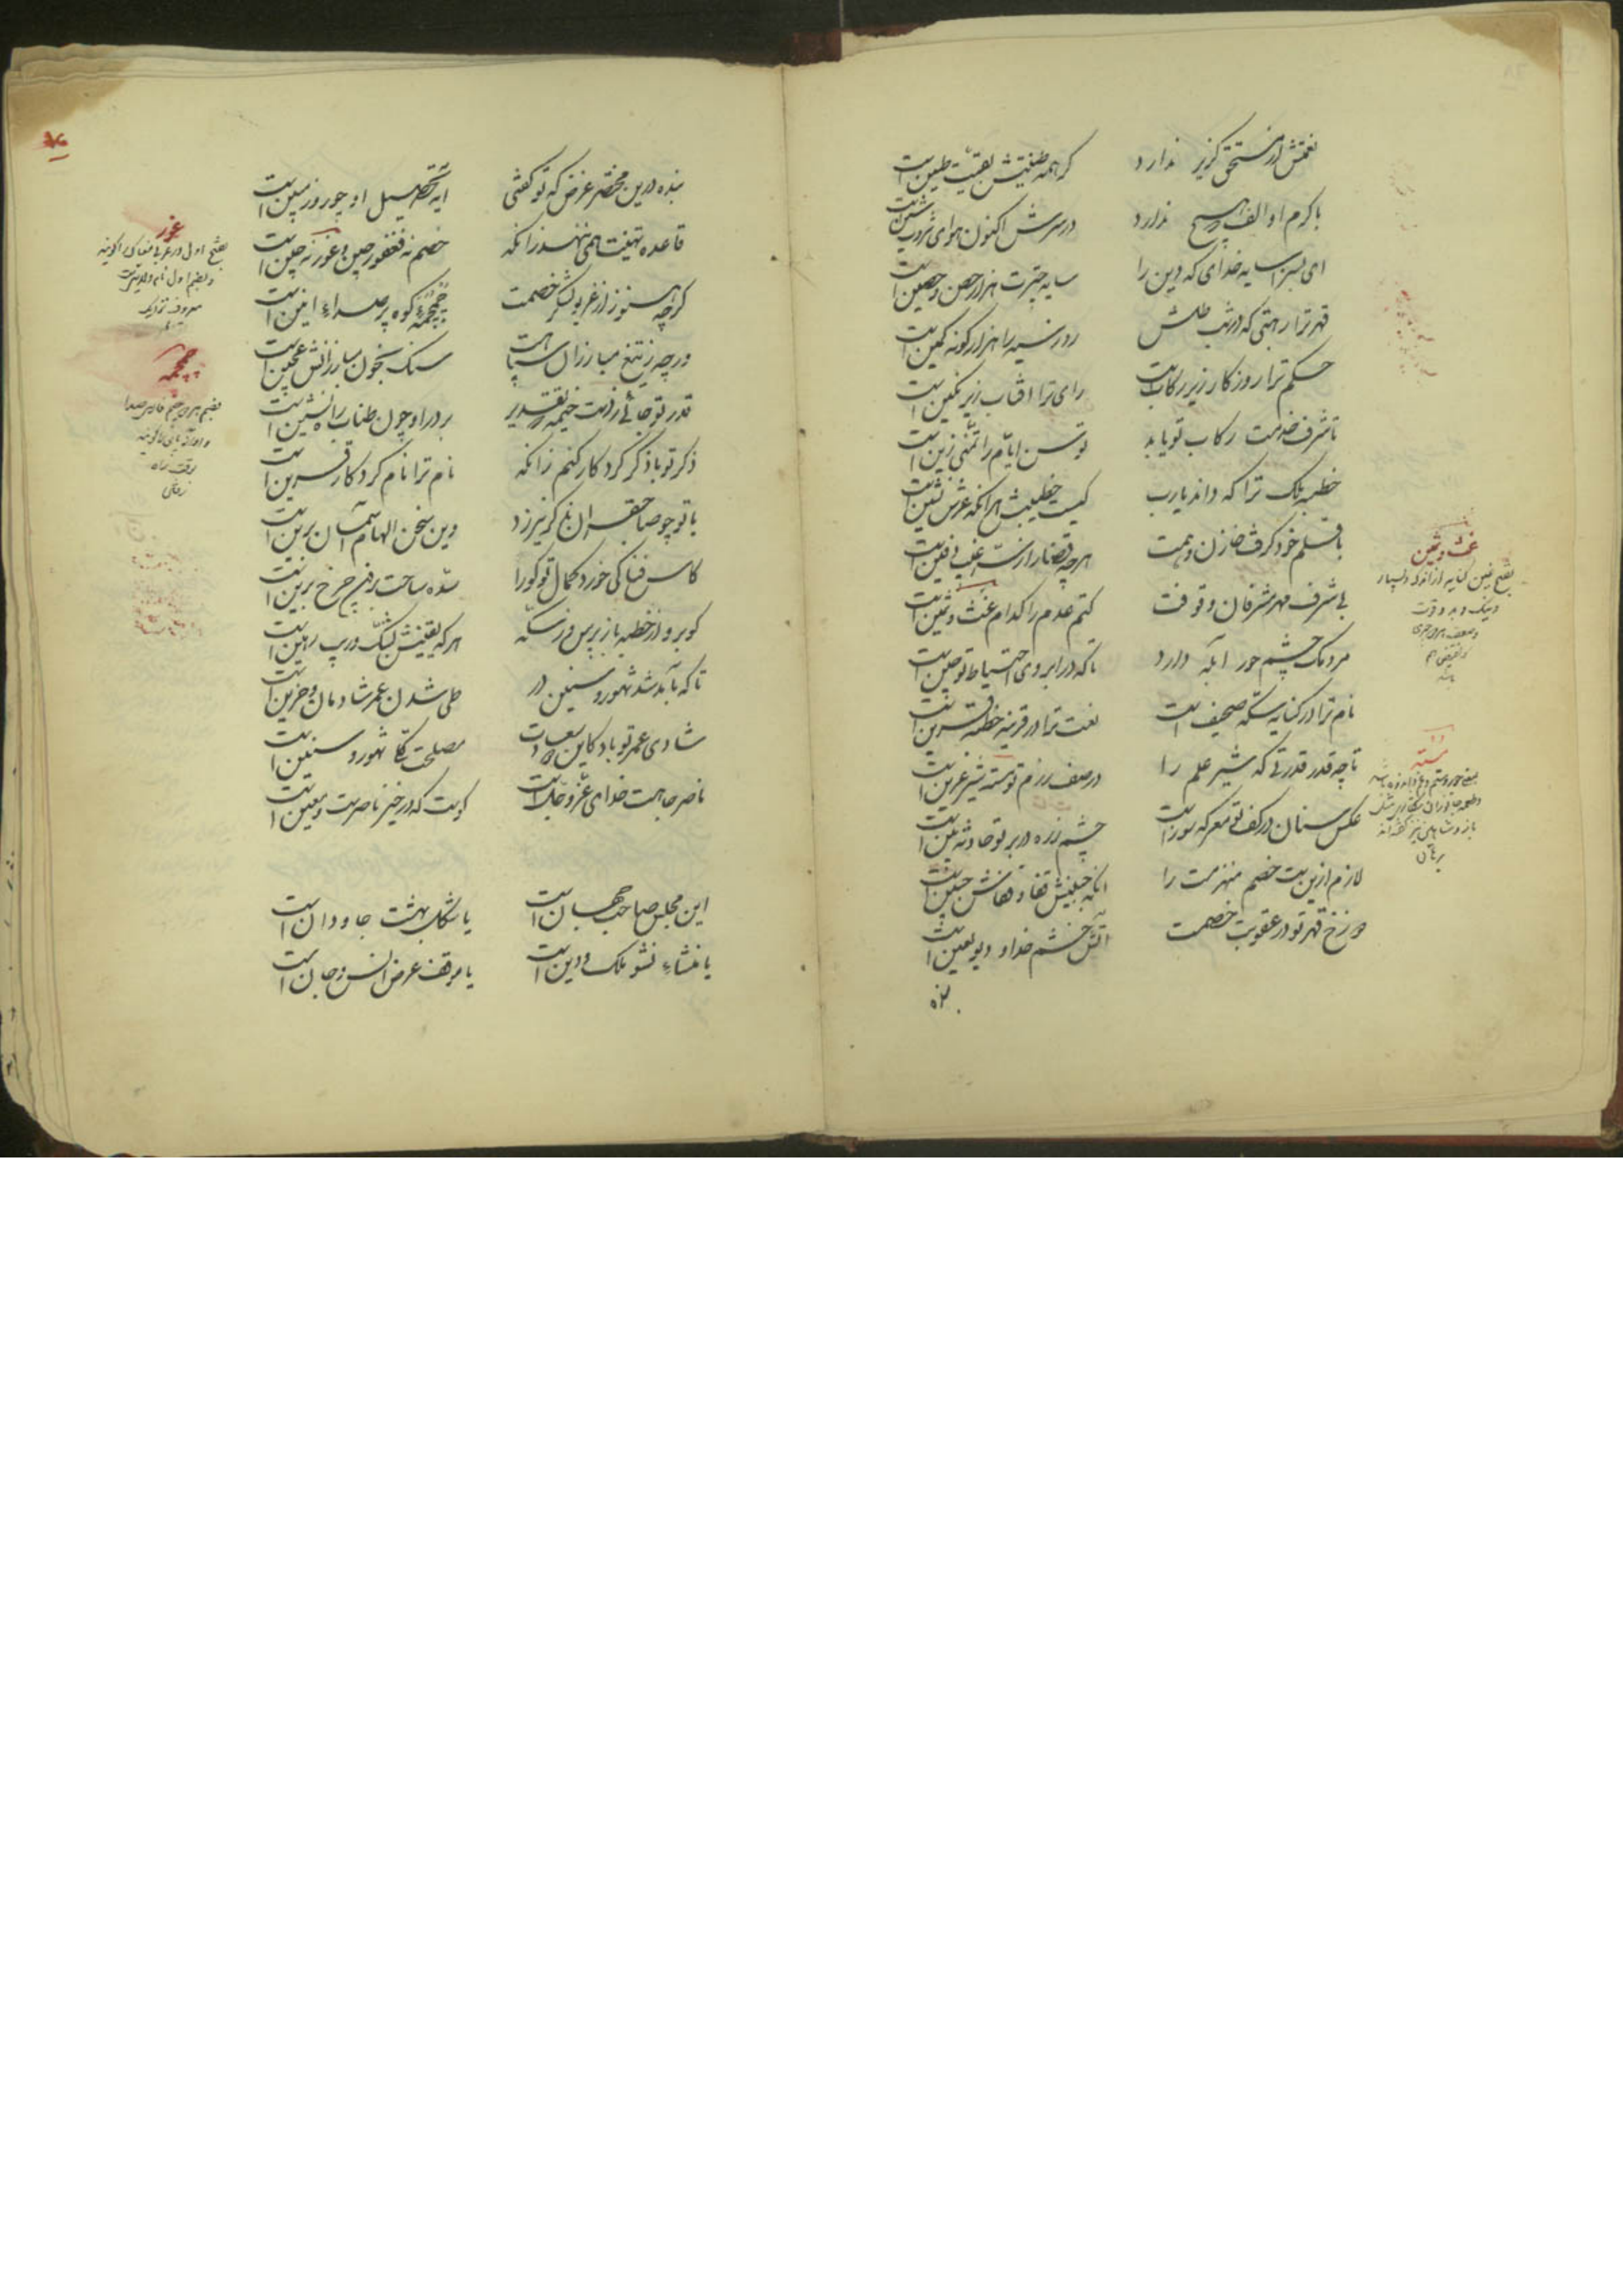 نعمتش از مستحق گزیر ندارد که همه طینتش بقیت طین است
با کرم او الف که هیچ ندارد در سرش اکنون هوای ثروت شین است
ای بسزا سایه خدای که دین را سایه چترت هزار حصن حصین است
قهر ترا رهبتی که در شب ظلمش روز سیه را هزار گونه کمین است
حکم ترا روزگار زیر رکابست رای ترا آفتاب زیر نگین است
تا شرف خدمت رکاب تو یابد توسن ایام را تمنی زین است
خطبه ملک ترا که داند یارب کیست خطیبش هر آنکه عرش نشین است
با قلم خود گرفت خازن وهمت هرچه قضا را ز سر غیب دفین است
بی شرف مهر مشرفان وقوفت کتم عدم را کدام غث و ثمین است
مردمک چشم جور آبله دارد تا که در ابروی احتیاط تو چین است
نام ترا در کنایه سکه صحیف است نعت ترا در قرینه خطبه قرین است
تا چه قدر قدرتی که شیر علم را در صف رزم تو مسته شیر عرین است
عکس سنان در کف تو معرکه سوز است چشم زره در بر تو حادثه بین است
لازم ازین بیت خصم منهزمت را آنکه جبینش قفا و قفاش جبین است
دوزخ قهر تو در عقوبت خصمت آتش خشم خدا و دیو لعین است
بنده
بنده درین مختصر غرض که تو گفتی آیه تحصیل او چو روز مبین است
قاعده تهنیت همی ننهد زانکه خصم نه فغفور چین و غور نه چین است
گرچه هنوز از غریو لشکر خصمت چمچمه کوه پر صداء انین است
ورچه ز تیغ مبارزان سپاهت سنگ بخون مبارزانش عجین است
قدر تو جائی زدست خیمه که تقدیر بر در او چون طناب راه نشین است
ذکر تو با ذکر کردگار کنم زانکه نام ترا نام کردگار قرین است
با تو چو صاحبقران بذکر نیرزد وین سخن الهام آسمان برین است
کاس فنا کی خورد کمال تو کورا سده ساحت رفیع چرخ برین است
کو برو از خطبه باز پرس و ز سکه هرکه یقینش بشک و ریب رهین است
تا که بآمد شد شهور و سنین در طی شدن عمر شادمان و حزین است
شادی عمر تو باد کاین سعادت مصلحت کل شهور و سنین است
ناصر جاهت خدای عز و جل است کوست که در خیر ناصرست و معین است
این مجلس صاحب جهان است یا شکل بهشت جاودان است
یا منشاء نشو ملک و دین است یا موقف عرض انس و جان است
غث و ثمین
مسته
غور
بفتح اول در عربی مغاک را گویند
و بضم اول نام ولایتیست
معروف نزدیک
چمچمه